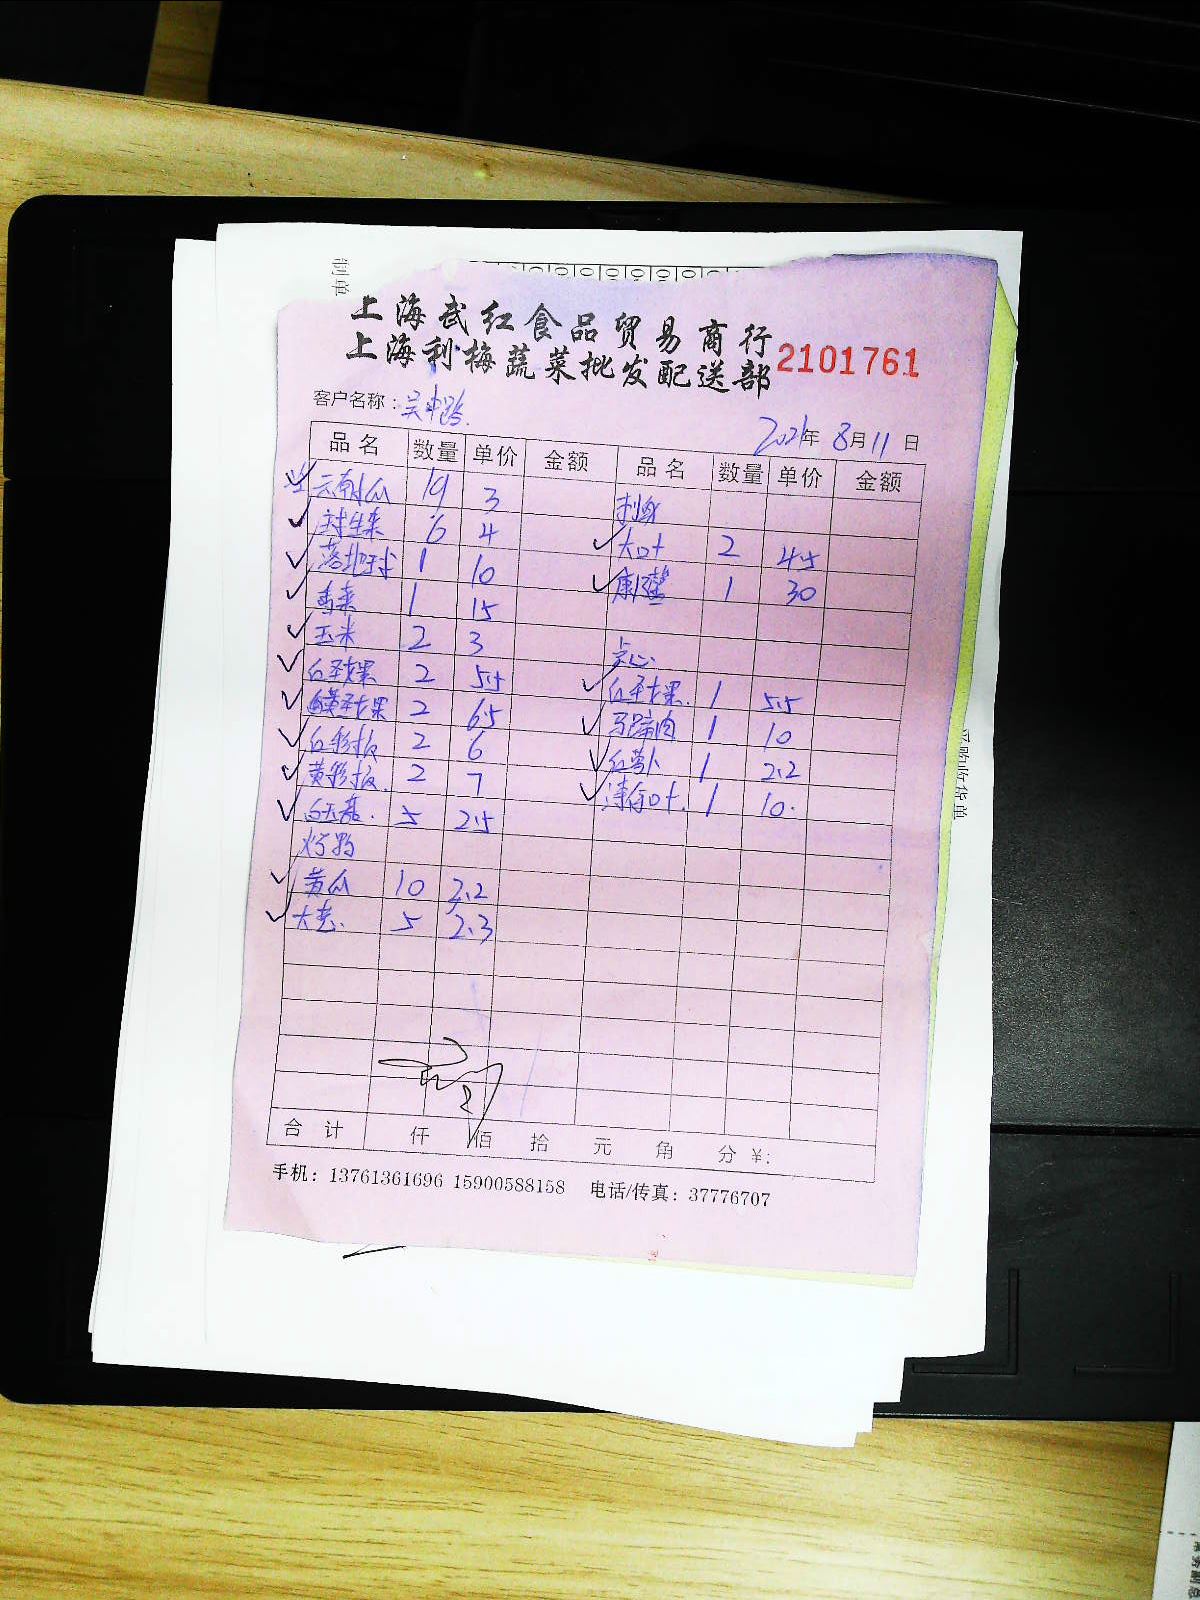 制单
上海武红食品贸易商行
上海利梅蔬菜批发配送部
2101761
客户名称：吴中路
2021年 8月11日
品名 数量 单价 金额 品名 数量 单价 金额
19 3 刺身
6 4 大叶 2 45
1 10 1 30
1 15
玉米 2 3 点心
红圣女果 2 5.5 红圣女果 1 5.5
黄圣女果 2 6.5 马蹄肉 1 10
红彩板 2 6 红萝卜 1 2.2
黄彩板 2 7 1 10
白玉菇 5 2.5
黄瓜 10 2.2
大葱 5 2.3
合计 仟 佰 拾 元 角 分 ¥:
手机：13761361696 15900588158 电话/传真：37776707
采购收货单